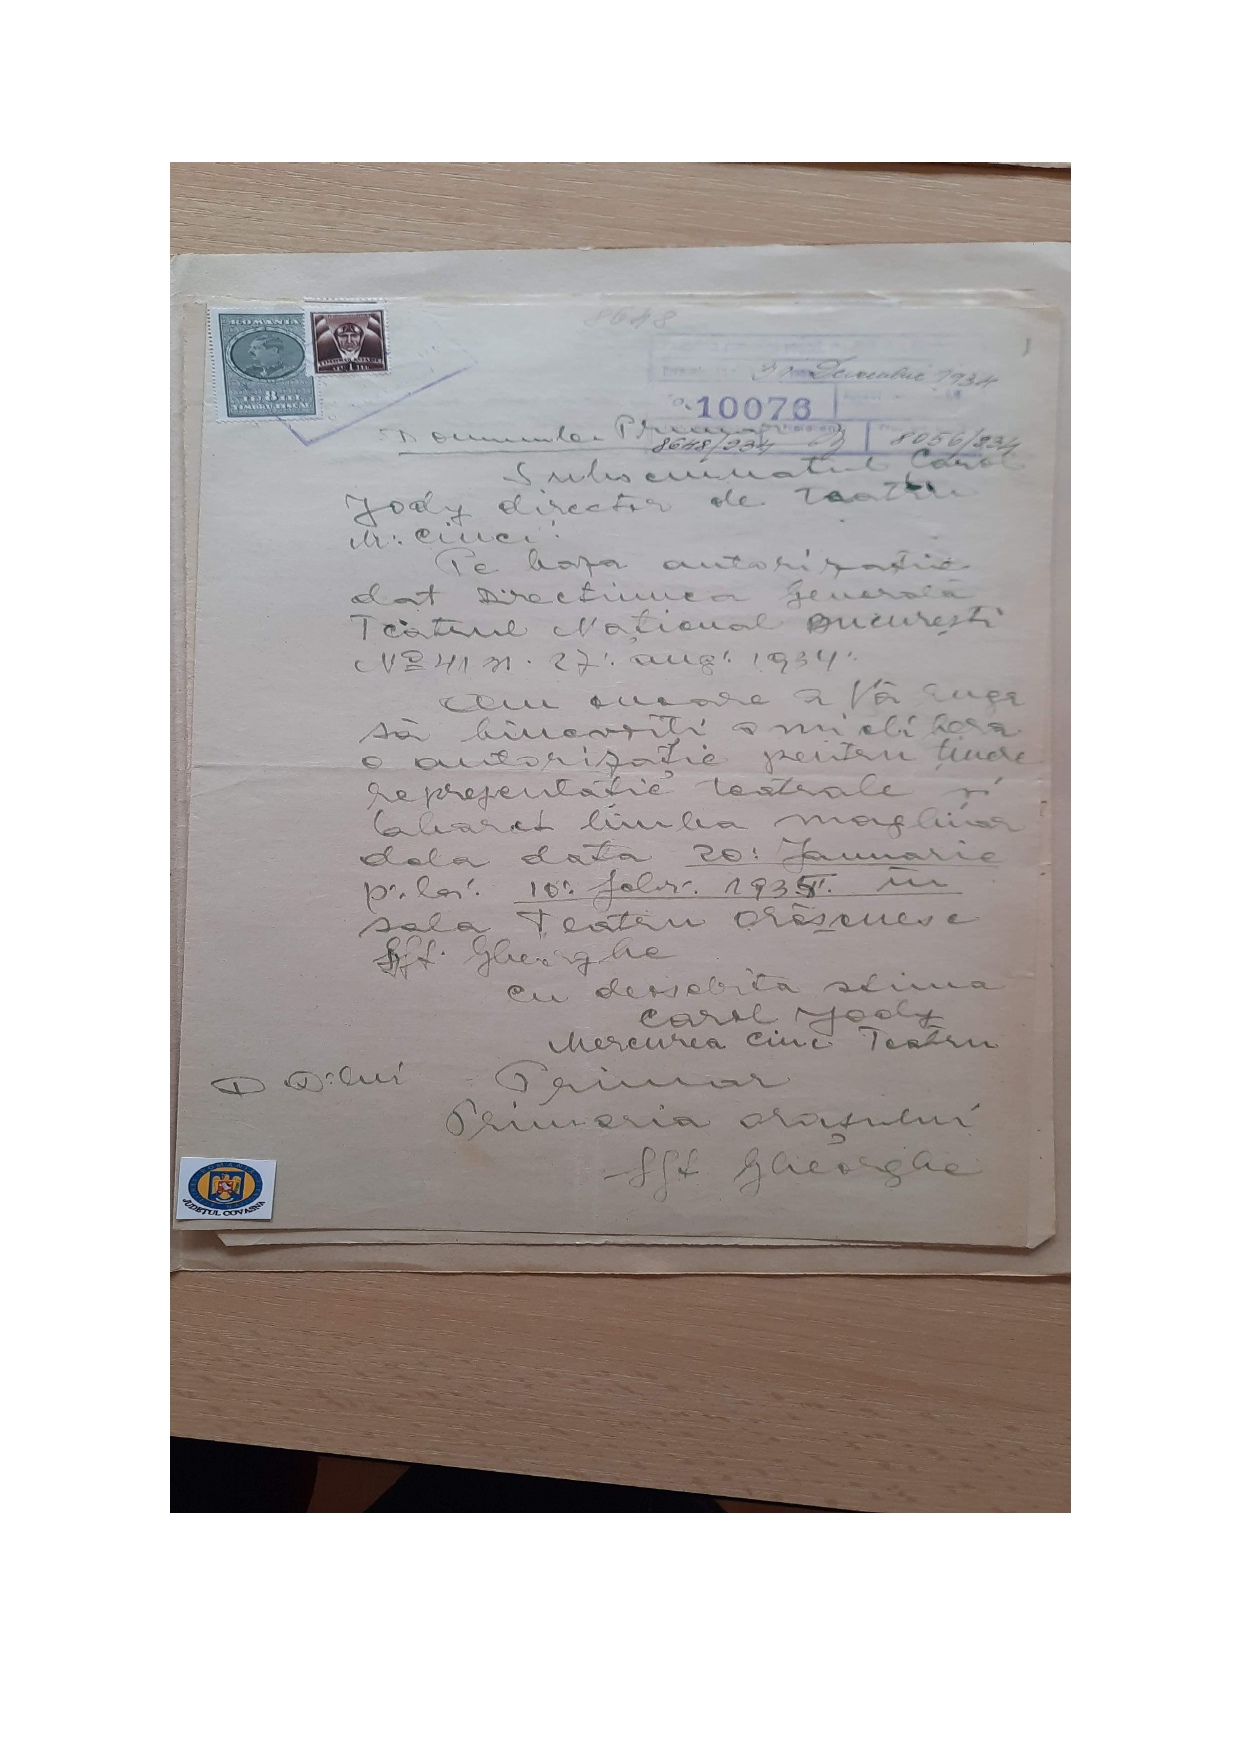 8648
1
ROMANIA
LEI 8 LEI
TIMBRU FISCAL
31 Decembrie 1934
10076
Domnule Primar
8648/934 8056/934
Subsemnatul Carol
Jody director de teatru
M: Ciuci:
Pe baza autorizatie
dat Directiunea Generală
Teatrul National București
No 41 27: aug: 1934:
Am onoare a Vă ruga
să binevoiti a mi elibera
o autorizație pentru tinde
reprezentatie teatrale si
Cabaret limba maghiar
dela data 20: Januarie
p: la: 10: febr: 1935. în
sala Teatru orășenesc
Sft. Gheorghe
cu deosebita stima
Carol Jody
Mercurea Ciuc Teatru
D D:lui Primar
Primaria orașului
Sft Gheorghe
ROMANIA
JUDETUL COVASNA